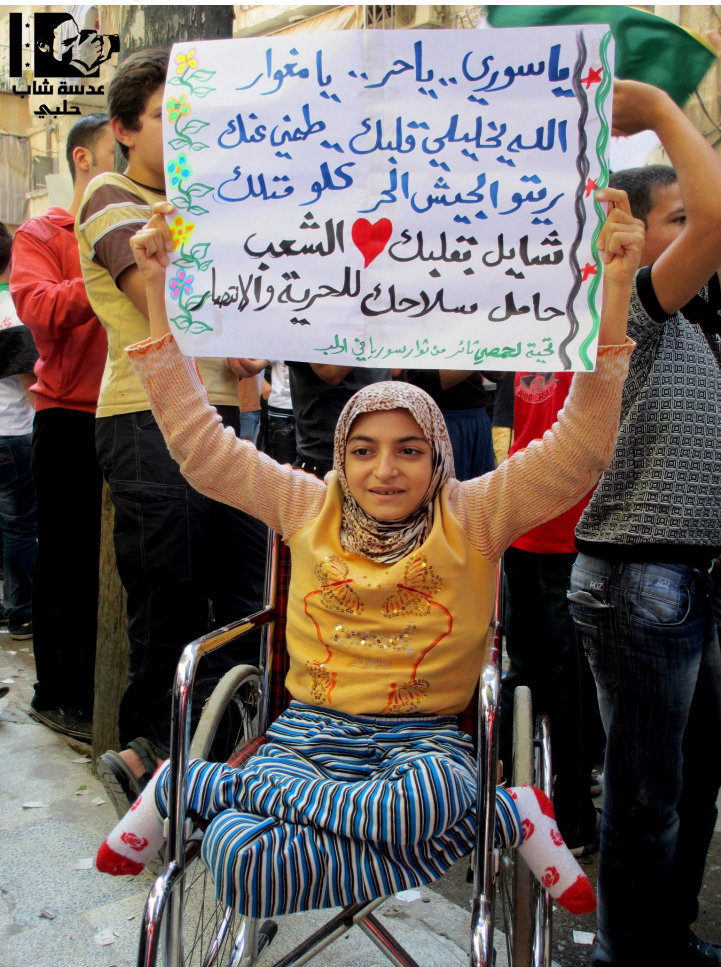 عدسة شاب
حلبي
يا سوري .. يا حر .. يا مغوار
الله يخليلي قلبك .. طمني عنك
ريتو الجيش الحر كلو متلك
شايل بقلبك الشعب
حامل بسلاحك للحرية والانتصار
تحية لحمصي ثائر من ثوار سوريا في ادلب